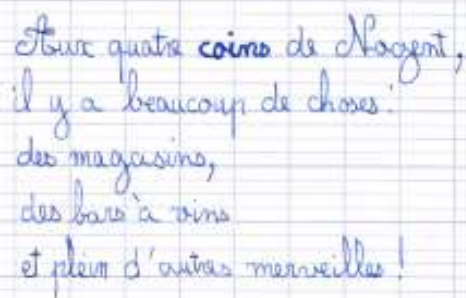 Aux quatre coins de Nogent,
il y a beaucoup de choses :
des magasins,
des bars à vins
et plein d'autres merveilles !